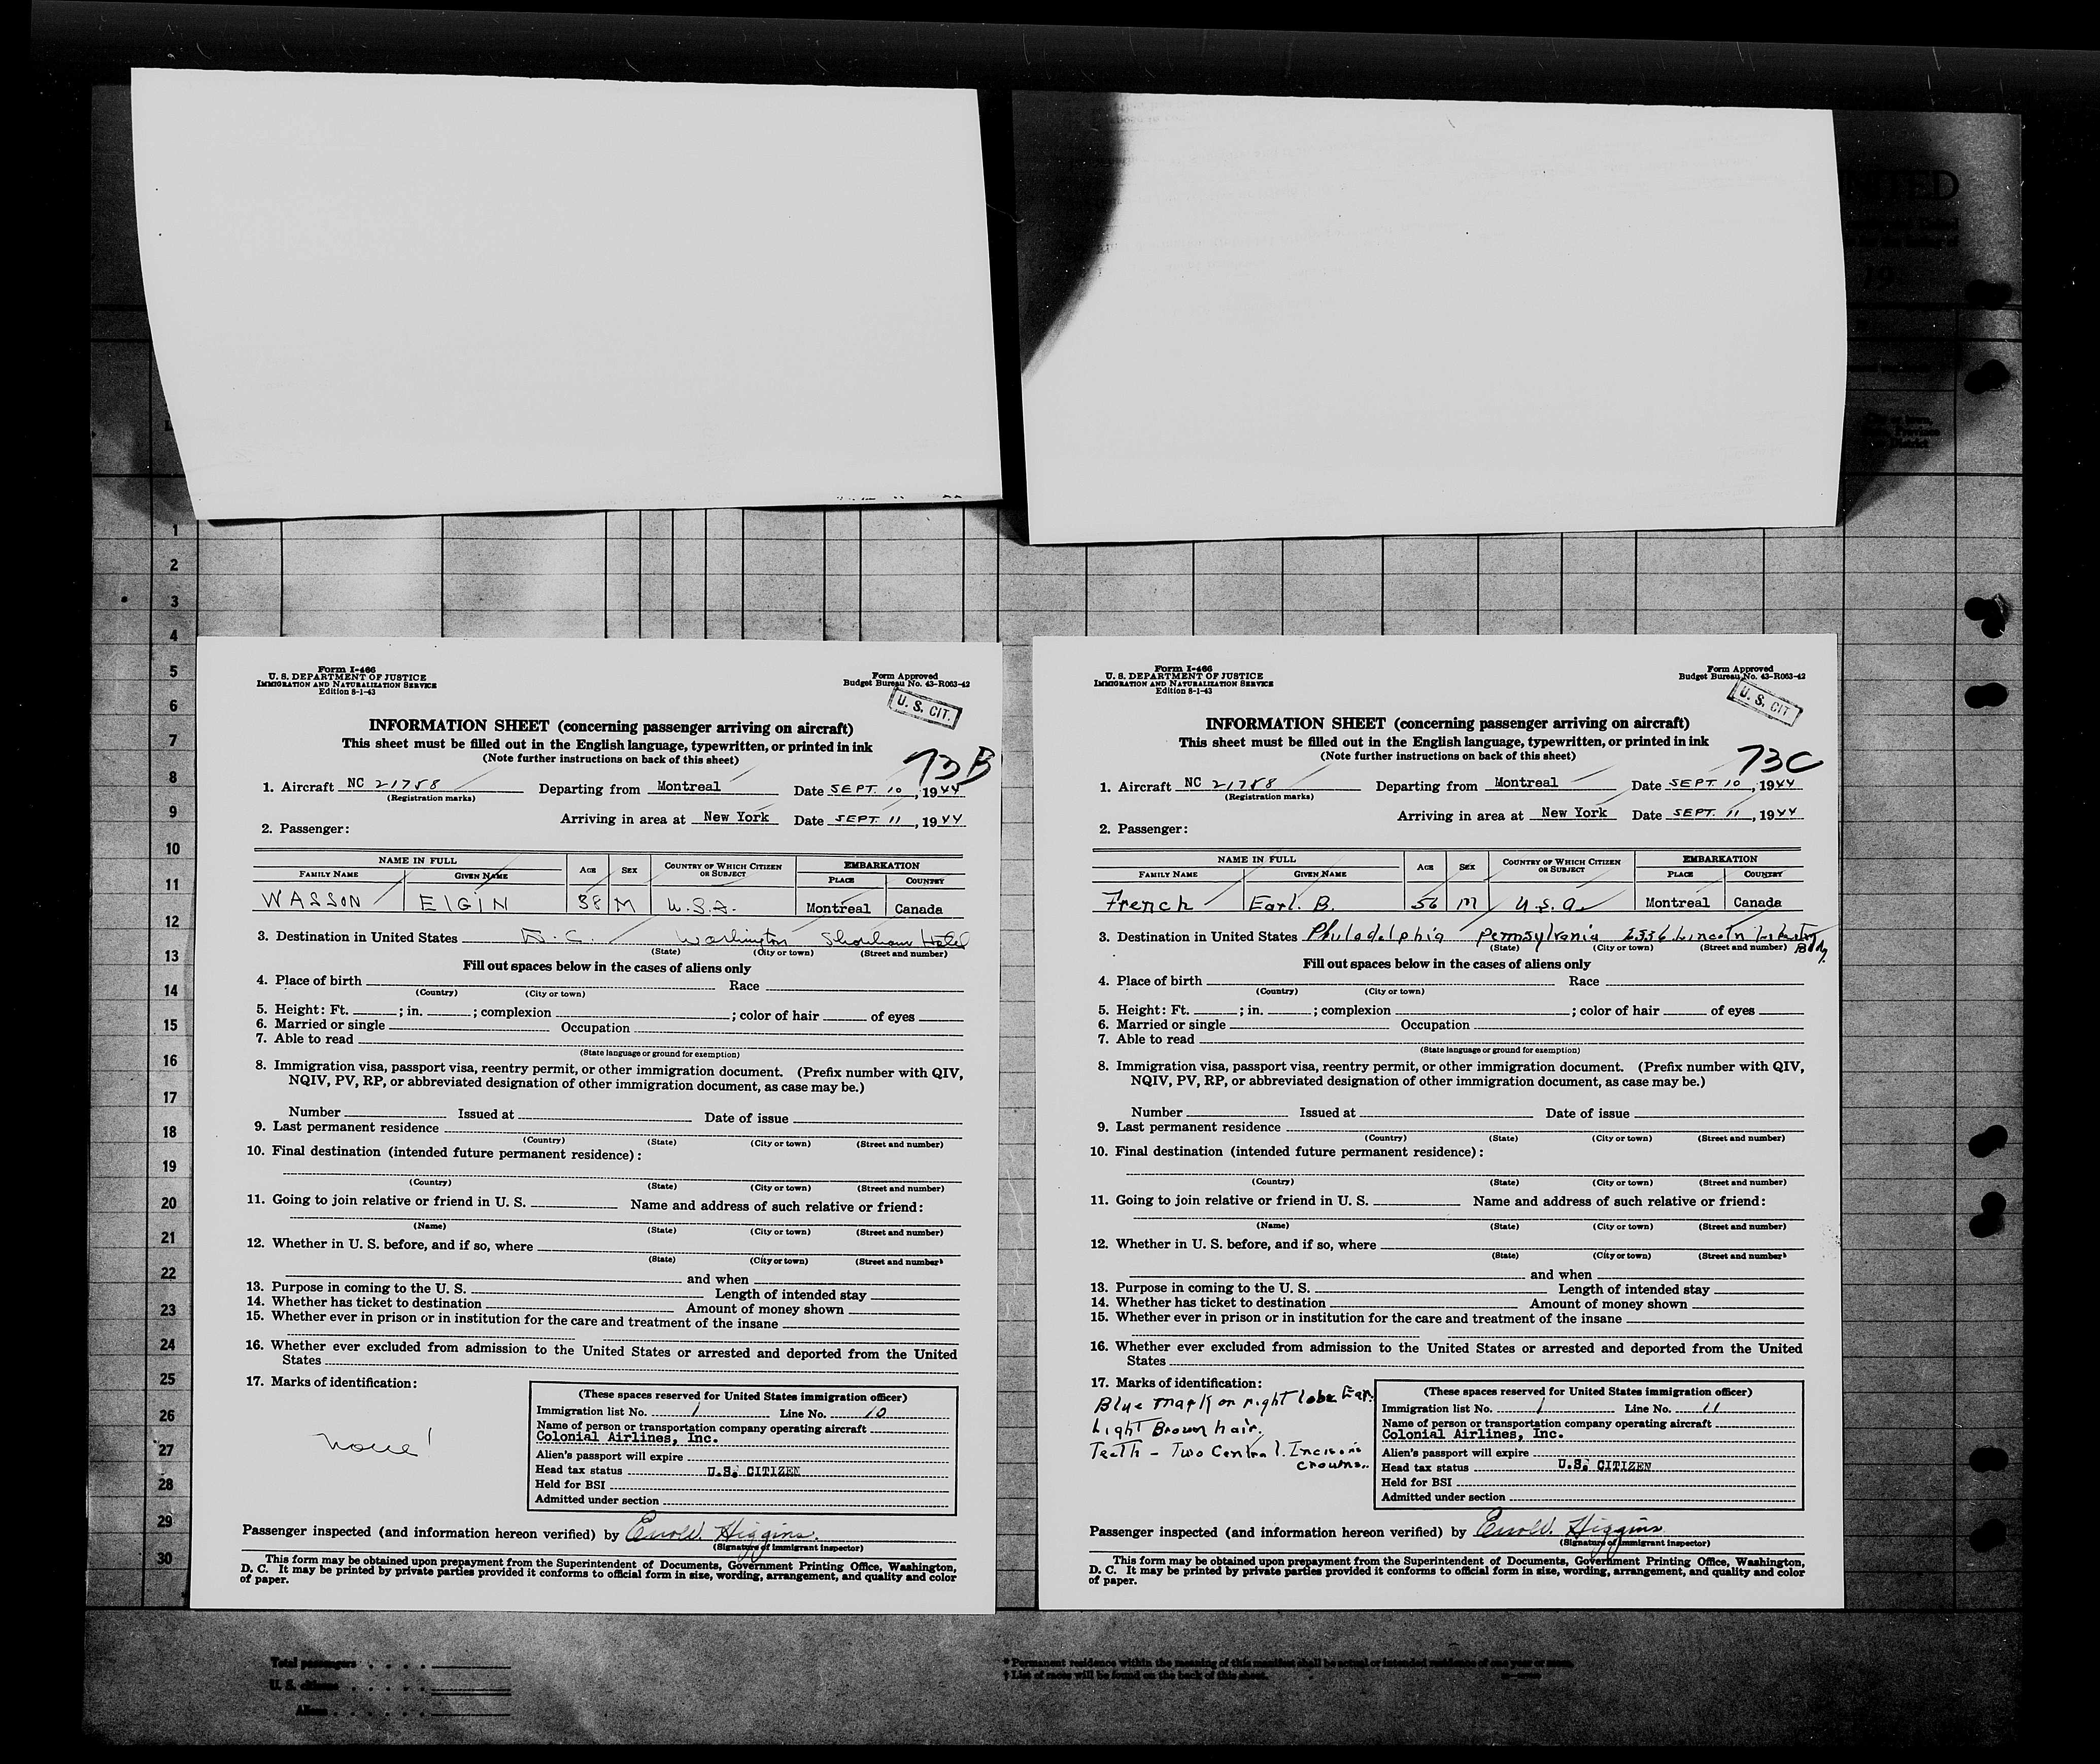 NITED
19
1
2
3
4
5
6
7
8
9
10
11
12
13
14
15
16
17
18
19
20
21
22
23
24
25
26
27
28
29
30
Form I-466
U. S. DEPARTMENT OF JUSTICE
IMMIGRATION AND NATURALIZATION SERVICE
Edition 8-1-43
Form Approved
Budget Bureau No. 43-R063-42
U. S. CIT.
INFORMATION SHEET (concerning passenger arriving on aircraft)
This sheet must be filled out in the English language, typewritten, or printed in ink
(Note further instructions on back of this sheet)
73B
1. Aircraft NC 21758 Departing from Montreal Date SEPT. 10, 1944
(Registration marks)
Arriving in area at New York Date SEPT. 11, 1944
2. Passenger:
NAME IN FULL AGE SEX COUNTRY OF WHICH CITIZEN OR SUBJECT EMBARKATION
FAMILY NAME GIVEN NAME PLACE COUNTRY
WASSON ELGIN 38 M U.S.A. Montreal Canada
3. Destination in United States D.C. Washington Shoreham Hotel
(State) (City or town) (Street and number)
Fill out spaces below in the cases of aliens only
4. Place of birth Race
(Country) (City or town)
5. Height: Ft. ; in. ; complexion ; color of hair of eyes
6. Married or single Occupation
7. Able to read
(State language or ground for exemption)
8. Immigration visa, passport visa, reentry permit, or other immigration document. (Prefix number with QIV,
NQIV, PV, RP, or abbreviated designation of other immigration document, as case may be.)
Number Issued at Date of issue
9. Last permanent residence
(Country) (State) (City or town) (Street and number)
10. Final destination (intended future permanent residence):
(Country) (State) (City or town) (Street and number)
11. Going to join relative or friend in U. S. Name and address of such relative or friend:
(Name) (State) (City or town) (Street and number)
12. Whether in U. S. before, and if so, where
(State) (City or town) (Street and number)
and when
13. Purpose in coming to the U. S. Length of intended stay
14. Whether has ticket to destination Amount of money shown
15. Whether ever in prison or in institution for the care and treatment of the insane
16. Whether ever excluded from admission to the United States or arrested and deported from the United
States
17. Marks of identification:
none!
(These spaces reserved for United States immigration officer)
Immigration list No. 1 Line No. 10
Name of person or transportation company operating aircraft
Colonial Airlines, Inc.
Alien's passport will expire
Head tax status U.S. CITIZEN
Held for BSI
Admitted under section
Passenger inspected (and information hereon verified) by Errol W. Higgins.
(Signature of immigrant inspector)
This form may be obtained upon prepayment from the Superintendent of Documents, Government Printing Office, Washington,
D. C. It may be printed by private parties provided it conforms to official form in size, wording, arrangement, and quality and color
of paper.
Form I-466
U. S. DEPARTMENT OF JUSTICE
IMMIGRATION AND NATURALIZATION SERVICE
Edition 8-1-43
Form Approved
Budget Bureau No. 43-R063-42
U. S. CIT
INFORMATION SHEET (concerning passenger arriving on aircraft)
This sheet must be filled out in the English language, typewritten, or printed in ink
(Note further instructions on back of this sheet)
73C
1. Aircraft NC 21758 Departing from Montreal Date SEPT. 10, 1944
(Registration marks)
Arriving in area at New York Date SEPT. 11, 1944
2. Passenger:
NAME IN FULL AGE SEX COUNTRY OF WHICH CITIZEN OR SUBJECT EMBARKATION
FAMILY NAME GIVEN NAME PLACE COUNTRY
French Earl. B. 56 M U.S.A. Montreal Canada
3. Destination in United States Philadelphia Pennsylvania Lincoln Liberty
(State) (City or town) (Street and number) Bldg.
Fill out spaces below in the cases of aliens only
4. Place of birth Race
(Country) (City or town)
5. Height: Ft. ; in. ; complexion ; color of hair of eyes
6. Married or single Occupation
7. Able to read
(State language or ground for exemption)
8. Immigration visa, passport visa, reentry permit, or other immigration document. (Prefix number with QIV,
NQIV, PV, RP, or abbreviated designation of other immigration document, as case may be.)
Number Issued at Date of issue
9. Last permanent residence
(Country) (State) (City or town) (Street and number)
10. Final destination (intended future permanent residence):
(Country) (State) (City or town) (Street and number)
11. Going to join relative or friend in U. S. Name and address of such relative or friend:
(Name) (State) (City or town) (Street and number)
12. Whether in U. S. before, and if so, where
(State) (City or town) (Street and number)
and when
13. Purpose in coming to the U. S. Length of intended stay
14. Whether has ticket to destination Amount of money shown
15. Whether ever in prison or in institution for the care and treatment of the insane
16. Whether ever excluded from admission to the United States or arrested and deported from the United
States
17. Marks of identification:
Blue mark on right lobe Ear.
Light Brown hair.
Teeth - Two Central. Incisors
crowns..
(These spaces reserved for United States immigration officer)
Immigration list No. 1 Line No. 11
Name of person or transportation company operating aircraft
Colonial Airlines, Inc.
Alien's passport will expire
Head tax status U.S. CITIZEN
Held for BSI
Admitted under section
Passenger inspected (and information hereon verified) by Errol W. Higgins
(Signature of immigrant inspector)
This form may be obtained upon prepayment from the Superintendent of Documents, Government Printing Office, Washington,
D. C. It may be printed by private parties provided it conforms to official form in size, wording, arrangement, and quality and color
of paper.
Total passengers
U. S. citizens
Aliens
* Permanent residence within the meaning of this manifest shall be actual or intended residence of one year or more.
† List of races will be found on the back of this sheet.